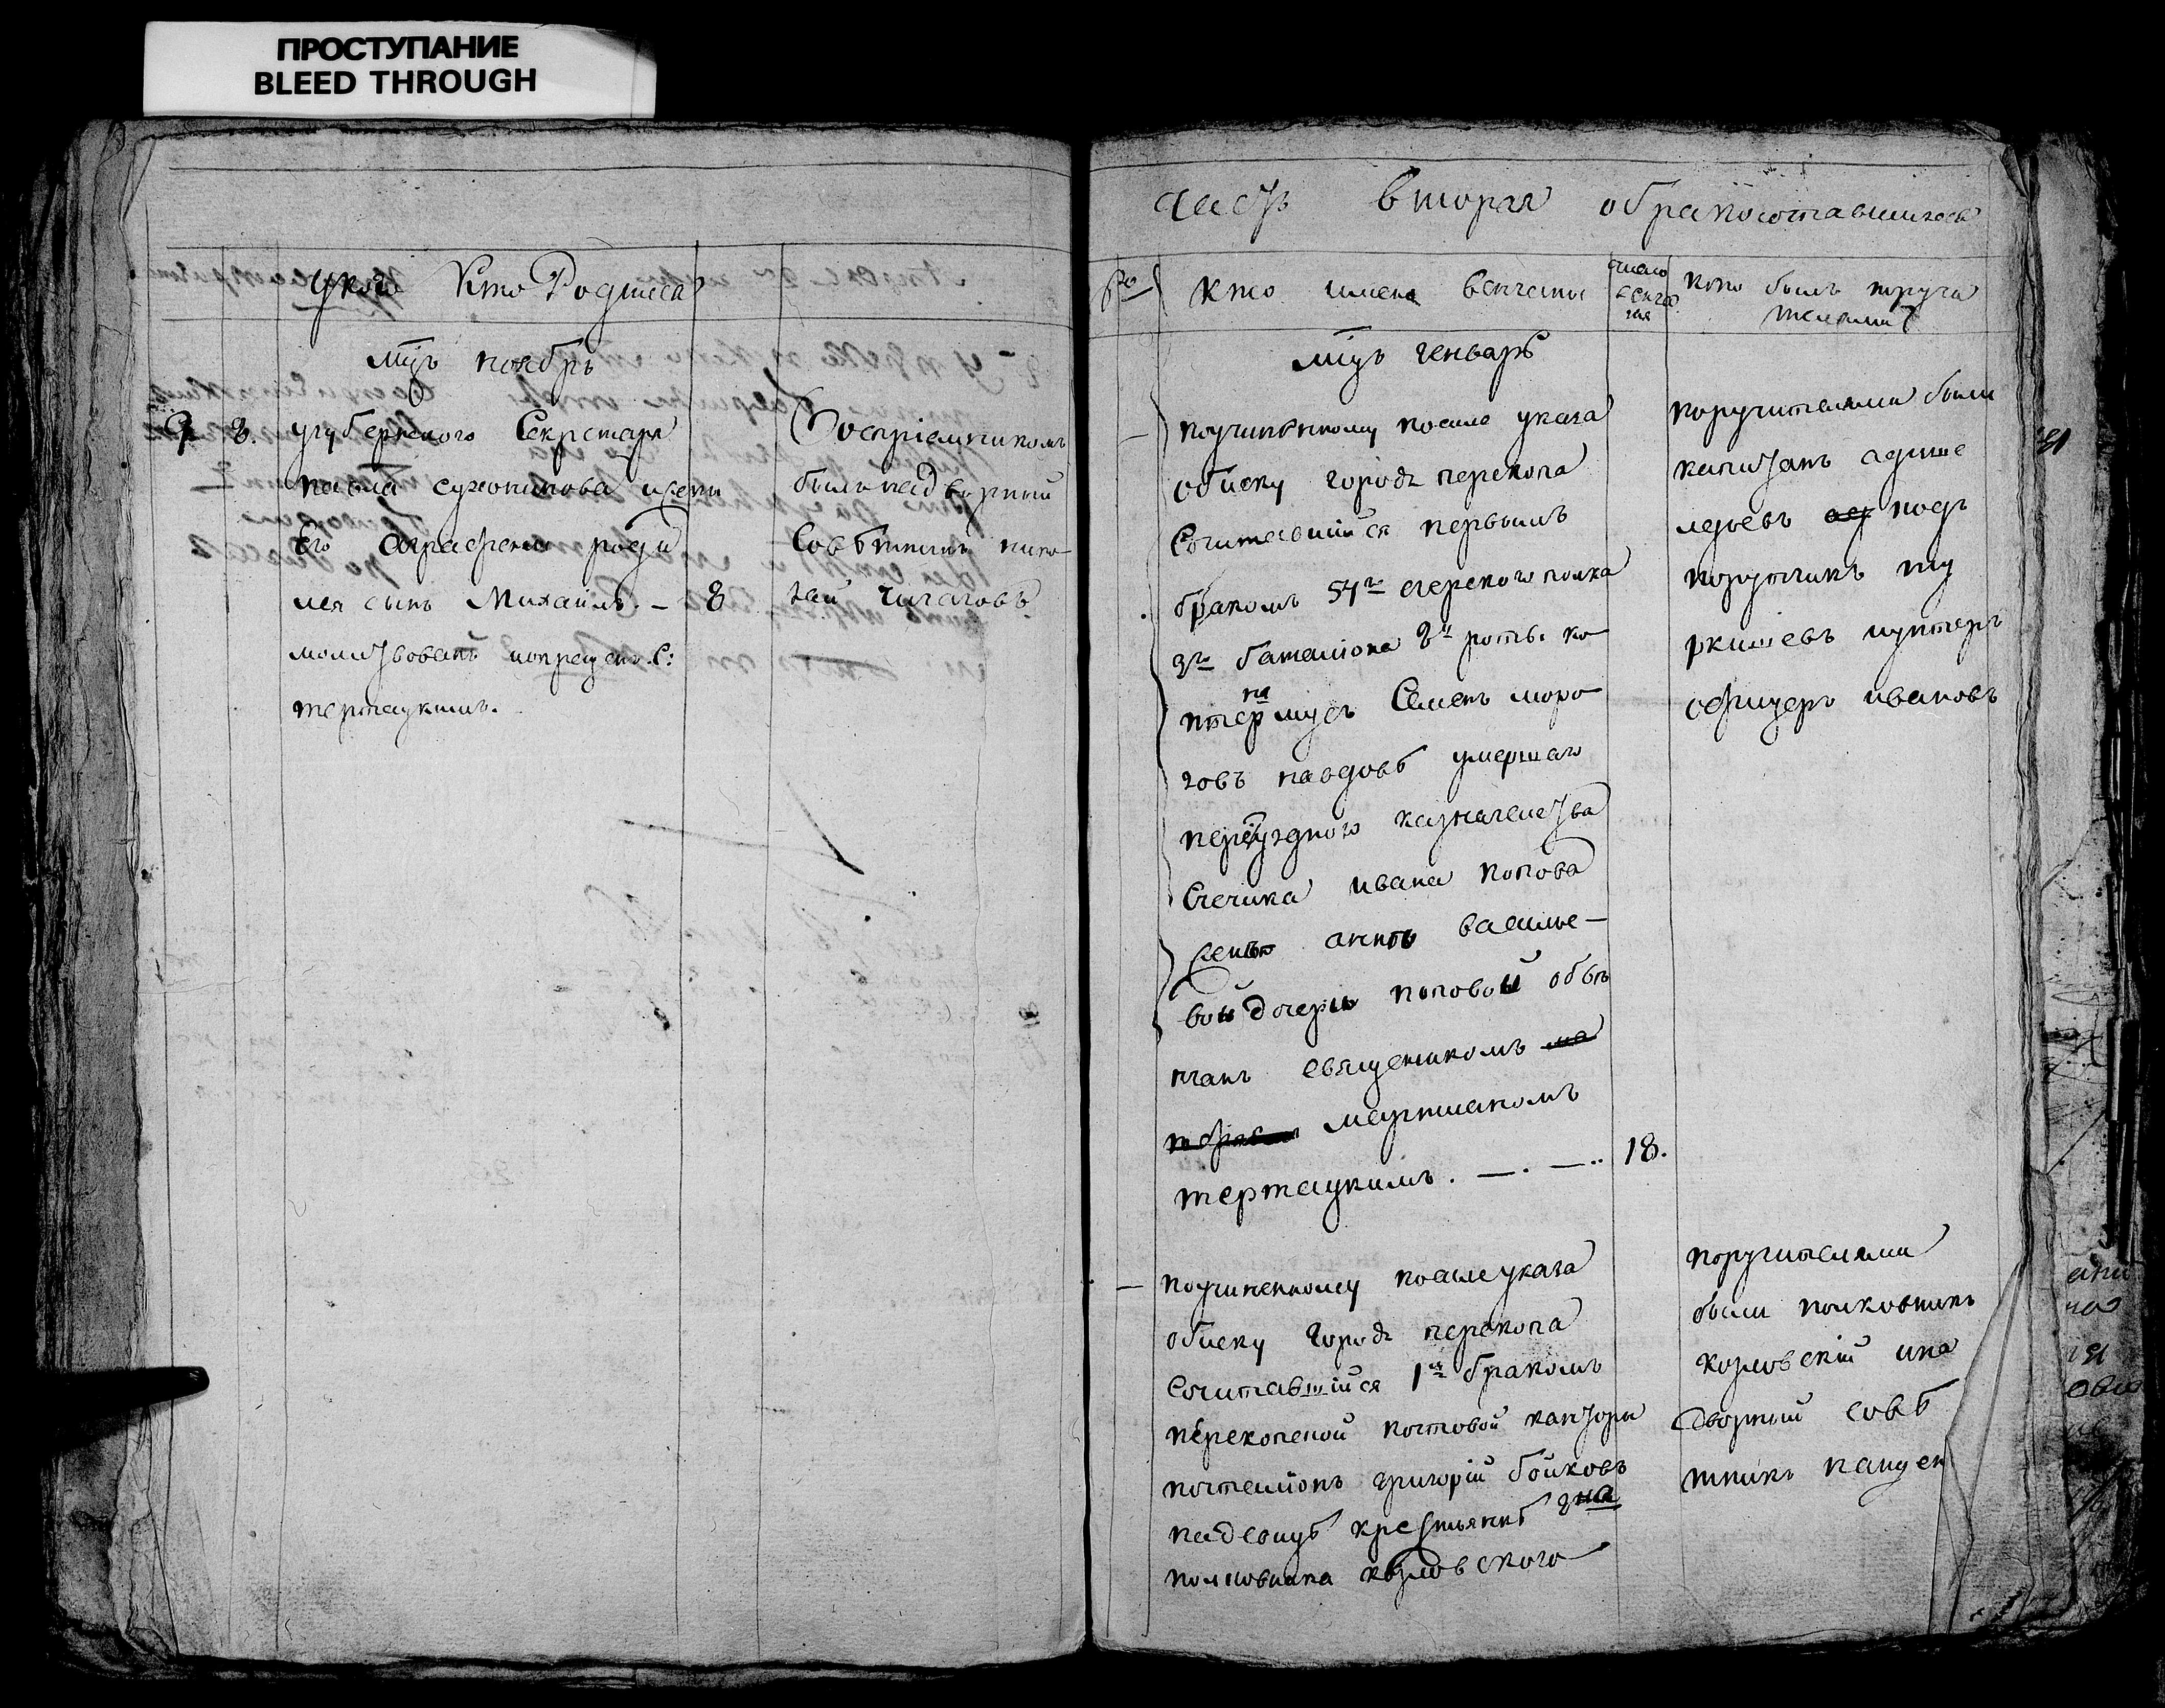 ПРОСТУПАНИЕ
BLEED THROUGH
укого Кто Родился
мць ноябрь
8. угубернского Секретаря
павла сухопинова ижены
Его Аграфены роди
лся сынъ Михаилъ. – 8
молитвовалъ икрещенъ С:
тертацкимъ.
Воспріемникомъ
былъ надворный
Совѣтникъ нико
лай чигаговъ
часть вторая обракосочетавшихся
кто имена венчаны
число венча
ния
кто былъ поручи
телями
мць генварь
поучиненному посиле указа
обыску города перекопа
Сочитавшійся первымъ
бракомъ 54го егерского полка
3го баталіона 2й роты ка
птернамусъ Семенъ моро
зовъ навдовѣ умершаго
переуезднаго казначейства
Счечика ивана попова
женѣ аннѣ василье-
вой дочери поповой обвѣ
нчанъ священикомъ
мартианомъ
тертацкимъ . —. —.. 18.
поручителями были
капитанъ
подъ
порутчикъ
унтеръ
офицеръ ивановъ
поучиненному посиле указа
обыску города перекопа
Сочитавшійся 1м бракомъ
перекопской почтовой канторы
почталіонъ григорій бойковъ
надевицѣ крестьянкѣ гна
полковника козловского
поручителями
были полковникъ
козловскій ина
дворный совѣ
тникъ панцен